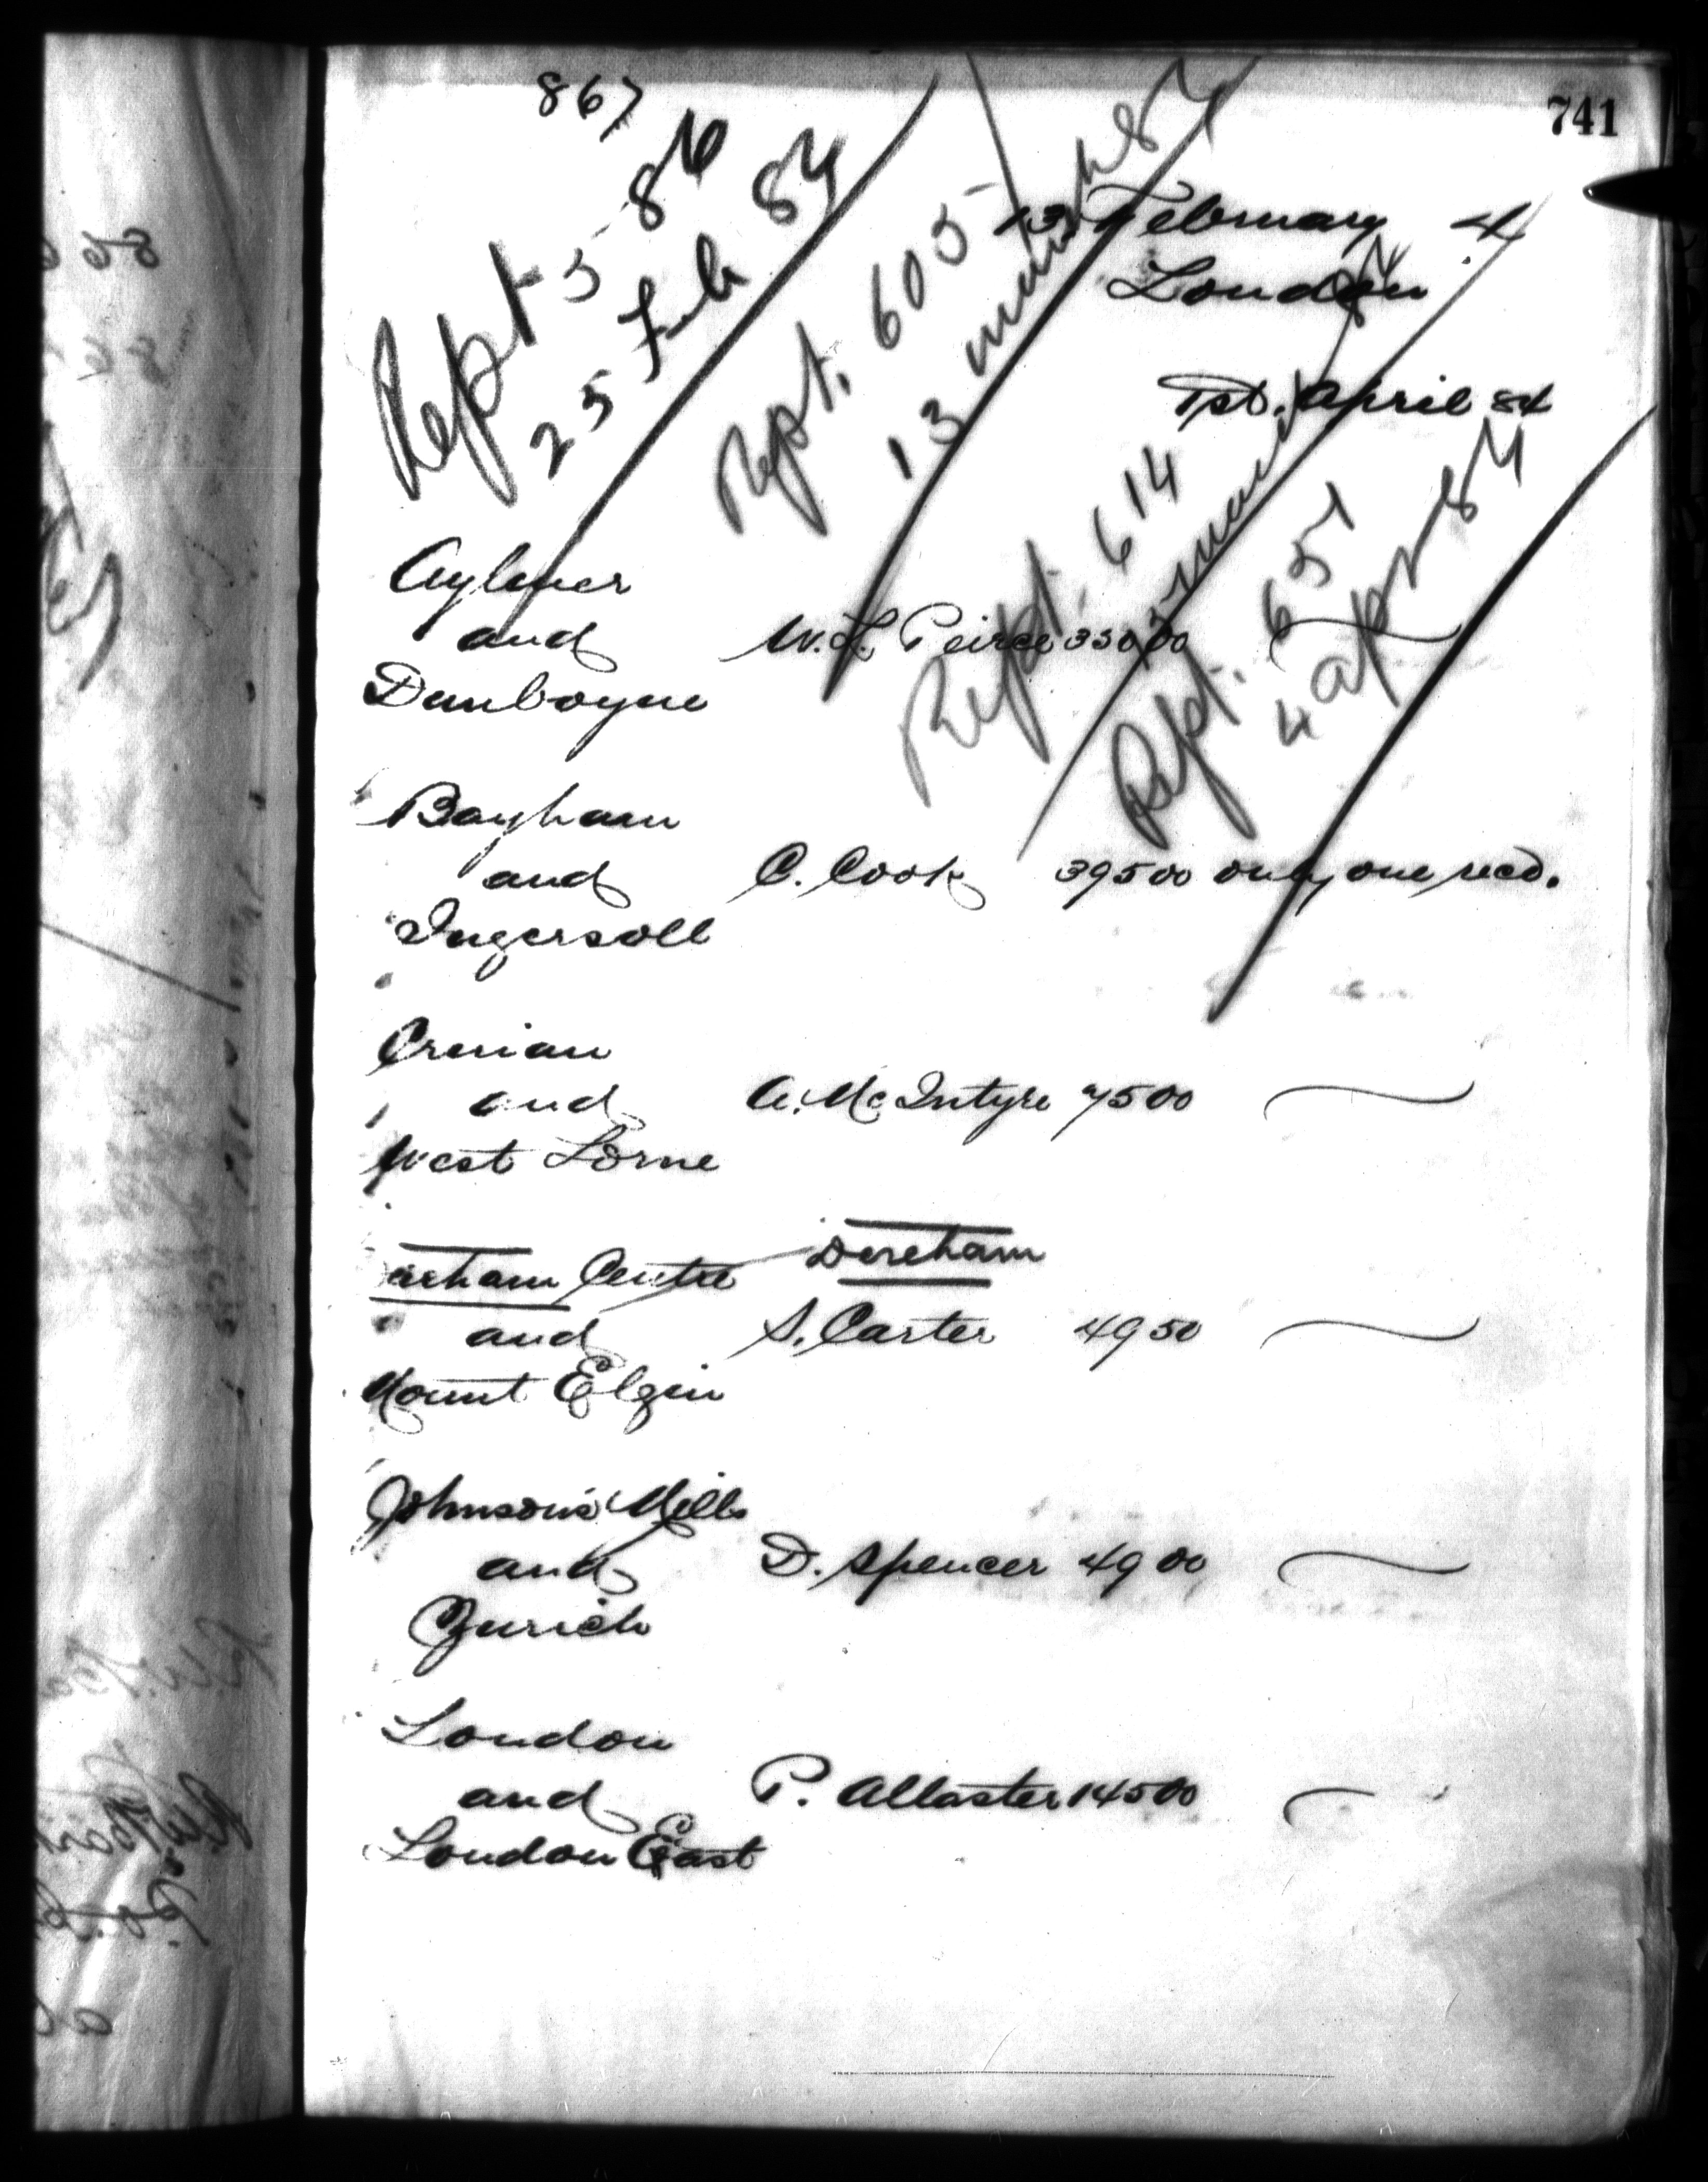 867
741
13 February 4
London
1st. April 84
Rept 586
25 Feb 84
Rept. 605
13 march 84
Rept. 614
march 84
Rept. 651
4 apr 84
Aylmer
and W.L. Peirce 330 00
Dunboyne
Bayham
and C. Cook 395 00 only one recd.
Ingersoll
Crinan
and A. McIntyre 75 00
West Lorne
arham Centre Dereham
and S. Carter 49 50
Mount Elgin
Johnson's Mills
and D. Spencer 49 00
Zurich
London
and P. Allaster 145 00
London East